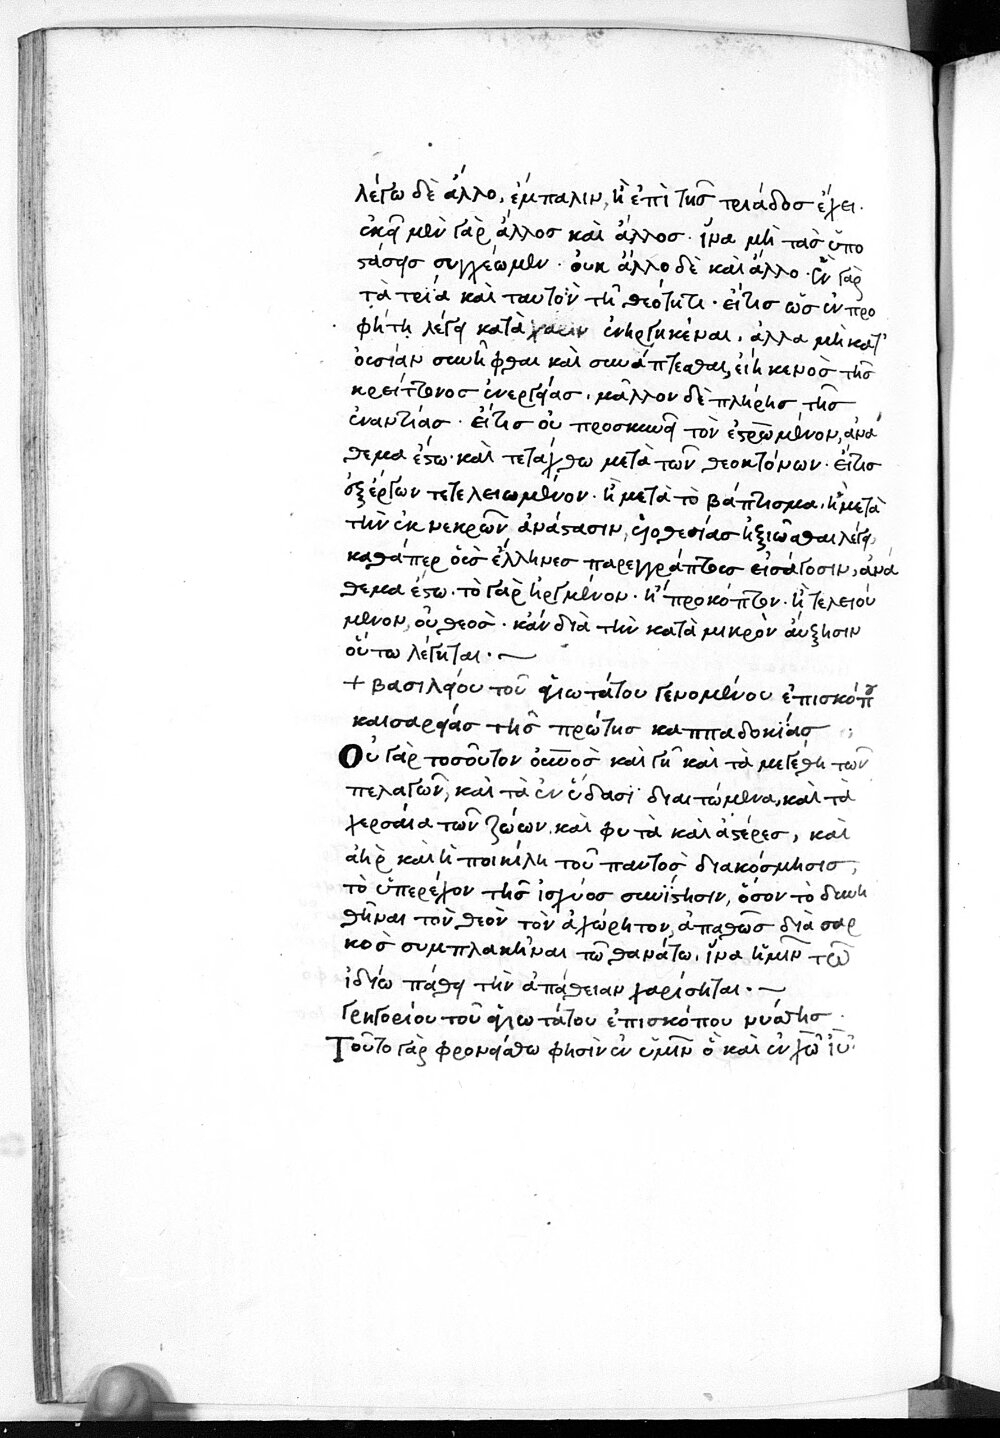 λέγω δὲ ἄλλο, ἔμπαλιν, ἢ ἐπὶ τῆς τριάδος ἔχει.
ἐκεῖ μὲν γὰρ ἄλλος καὶ ἄλλος· ἵνα μὴ τὰς ὑπο
στάσεις συγχέωμεν· οὐκ ἄλλο δὲ καὶ ἄλλο· ἓν γὰρ
τὰ τρία καὶ ταυτὸν τῇ θεότητι· εἴτις ὡς ἐν προ
φήτῃ λέγει κατὰ χάριν ἐνηργηκέναι, ἀλλὰ μὴ κατ'
οὐσίαν συνῆφθαι καὶ συνάπτεσθαι, εἴη κενὸς τῆς
κρείττονος ἐνεργείας, μᾶλλον δὲ πλήρης τῆς
ἐναντίας· εἴτις οὐ προσκυνεῖ τὸν ἐσταυρωμένον, ἀνά
θεμα ἔστω· καὶ τετάχθω μετὰ τῶν θεοκτόνων· εἴτις
ἐξ ἔργων τετελειωμένον· ἢ μετὰ τὸ βάπτισμα, ἢ μετὰ
τὴν ἐκ νεκρῶν ἀνάστασιν, υἱοθεσίας ἠξιῶσθαι λέγει,
καθάπερ οὓς ἕλληνες παρεγγράπτους εἰσάγουσιν, ἀνά
θεμα ἔστω· τὸ γὰρ ἠργμένον· ἢ προκόπτον· ἢ τελειού
μενον, οὐ θεὸς· κἂν διὰ τὴν κατὰ μικρὸν αὔξησιν
οὕτω λέγηται·
+ βασιλείου τοῦ ἁγιωτάτου γενομένου ἐπισκόπου
καισαρείας τῆς πρώτης καππαδοκίας
Οὐ γὰρ τοσοῦτον οὐνὸς καὶ γῆ καὶ τὰ μεγέθη τῶν
πελαγῶν, καὶ τὰ ἐν ὕδασι διαιτώμενα, καὶ τὰ
χερσαῖα τῶν ζώων, καὶ φυτὰ καὶ ἀστέρες, καὶ
ἀὴρ καὶ ἡ ποικίλη τοῦ παντὸς διακόσμησις,
τὸ ὑπερέχον τῆς ἰσχύος συνίστησιν, ὅσον τὸ δυνη
θῆναι τὸν θεὸν τὸν ἀχώρητον, ἀπαθῶς διὰ σαρ
κὸς συμπλακῆναι τῷ θανάτω, ἵνα ἡμῖν τῷ
ἰδίω πάθει τὴν ἀπάθειαν χαρίσηται·
Γρηγορίου τοῦ ἁγιωτάτου ἐπισκόπου νύσης·
Τοῦτο γὰρ φρονείσθω φησὶν ἐν ὑμῖν ὃ καὶ ἐν χῶ ἰῦ